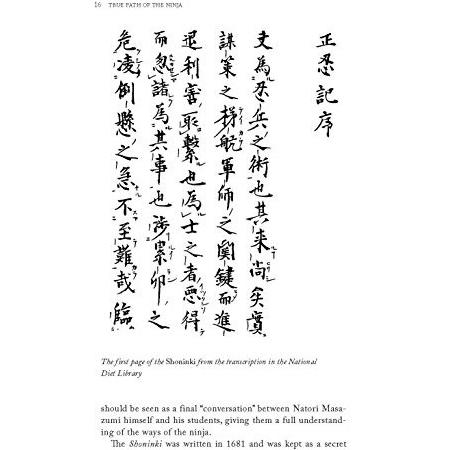 16 TRUE PATH OF THE NINJA
正忍記序
夫為忍兵之術也其来尚矣實
謀策之拐航軍師之関鍵而進
退利害所繋也為士之者悪得
而忽諸為其事也渉累卵之
危凌倒懸之急不至難哉臨
The first page of the Shoninki from the transcription in the National
Diet Library
should be seen as a final “conversation” between Natori Masa-
zumi himself and his students, giving them a full understand-
ing of the ways of the ninja.
The Shoninki was written in 1681 and was kept as a secret